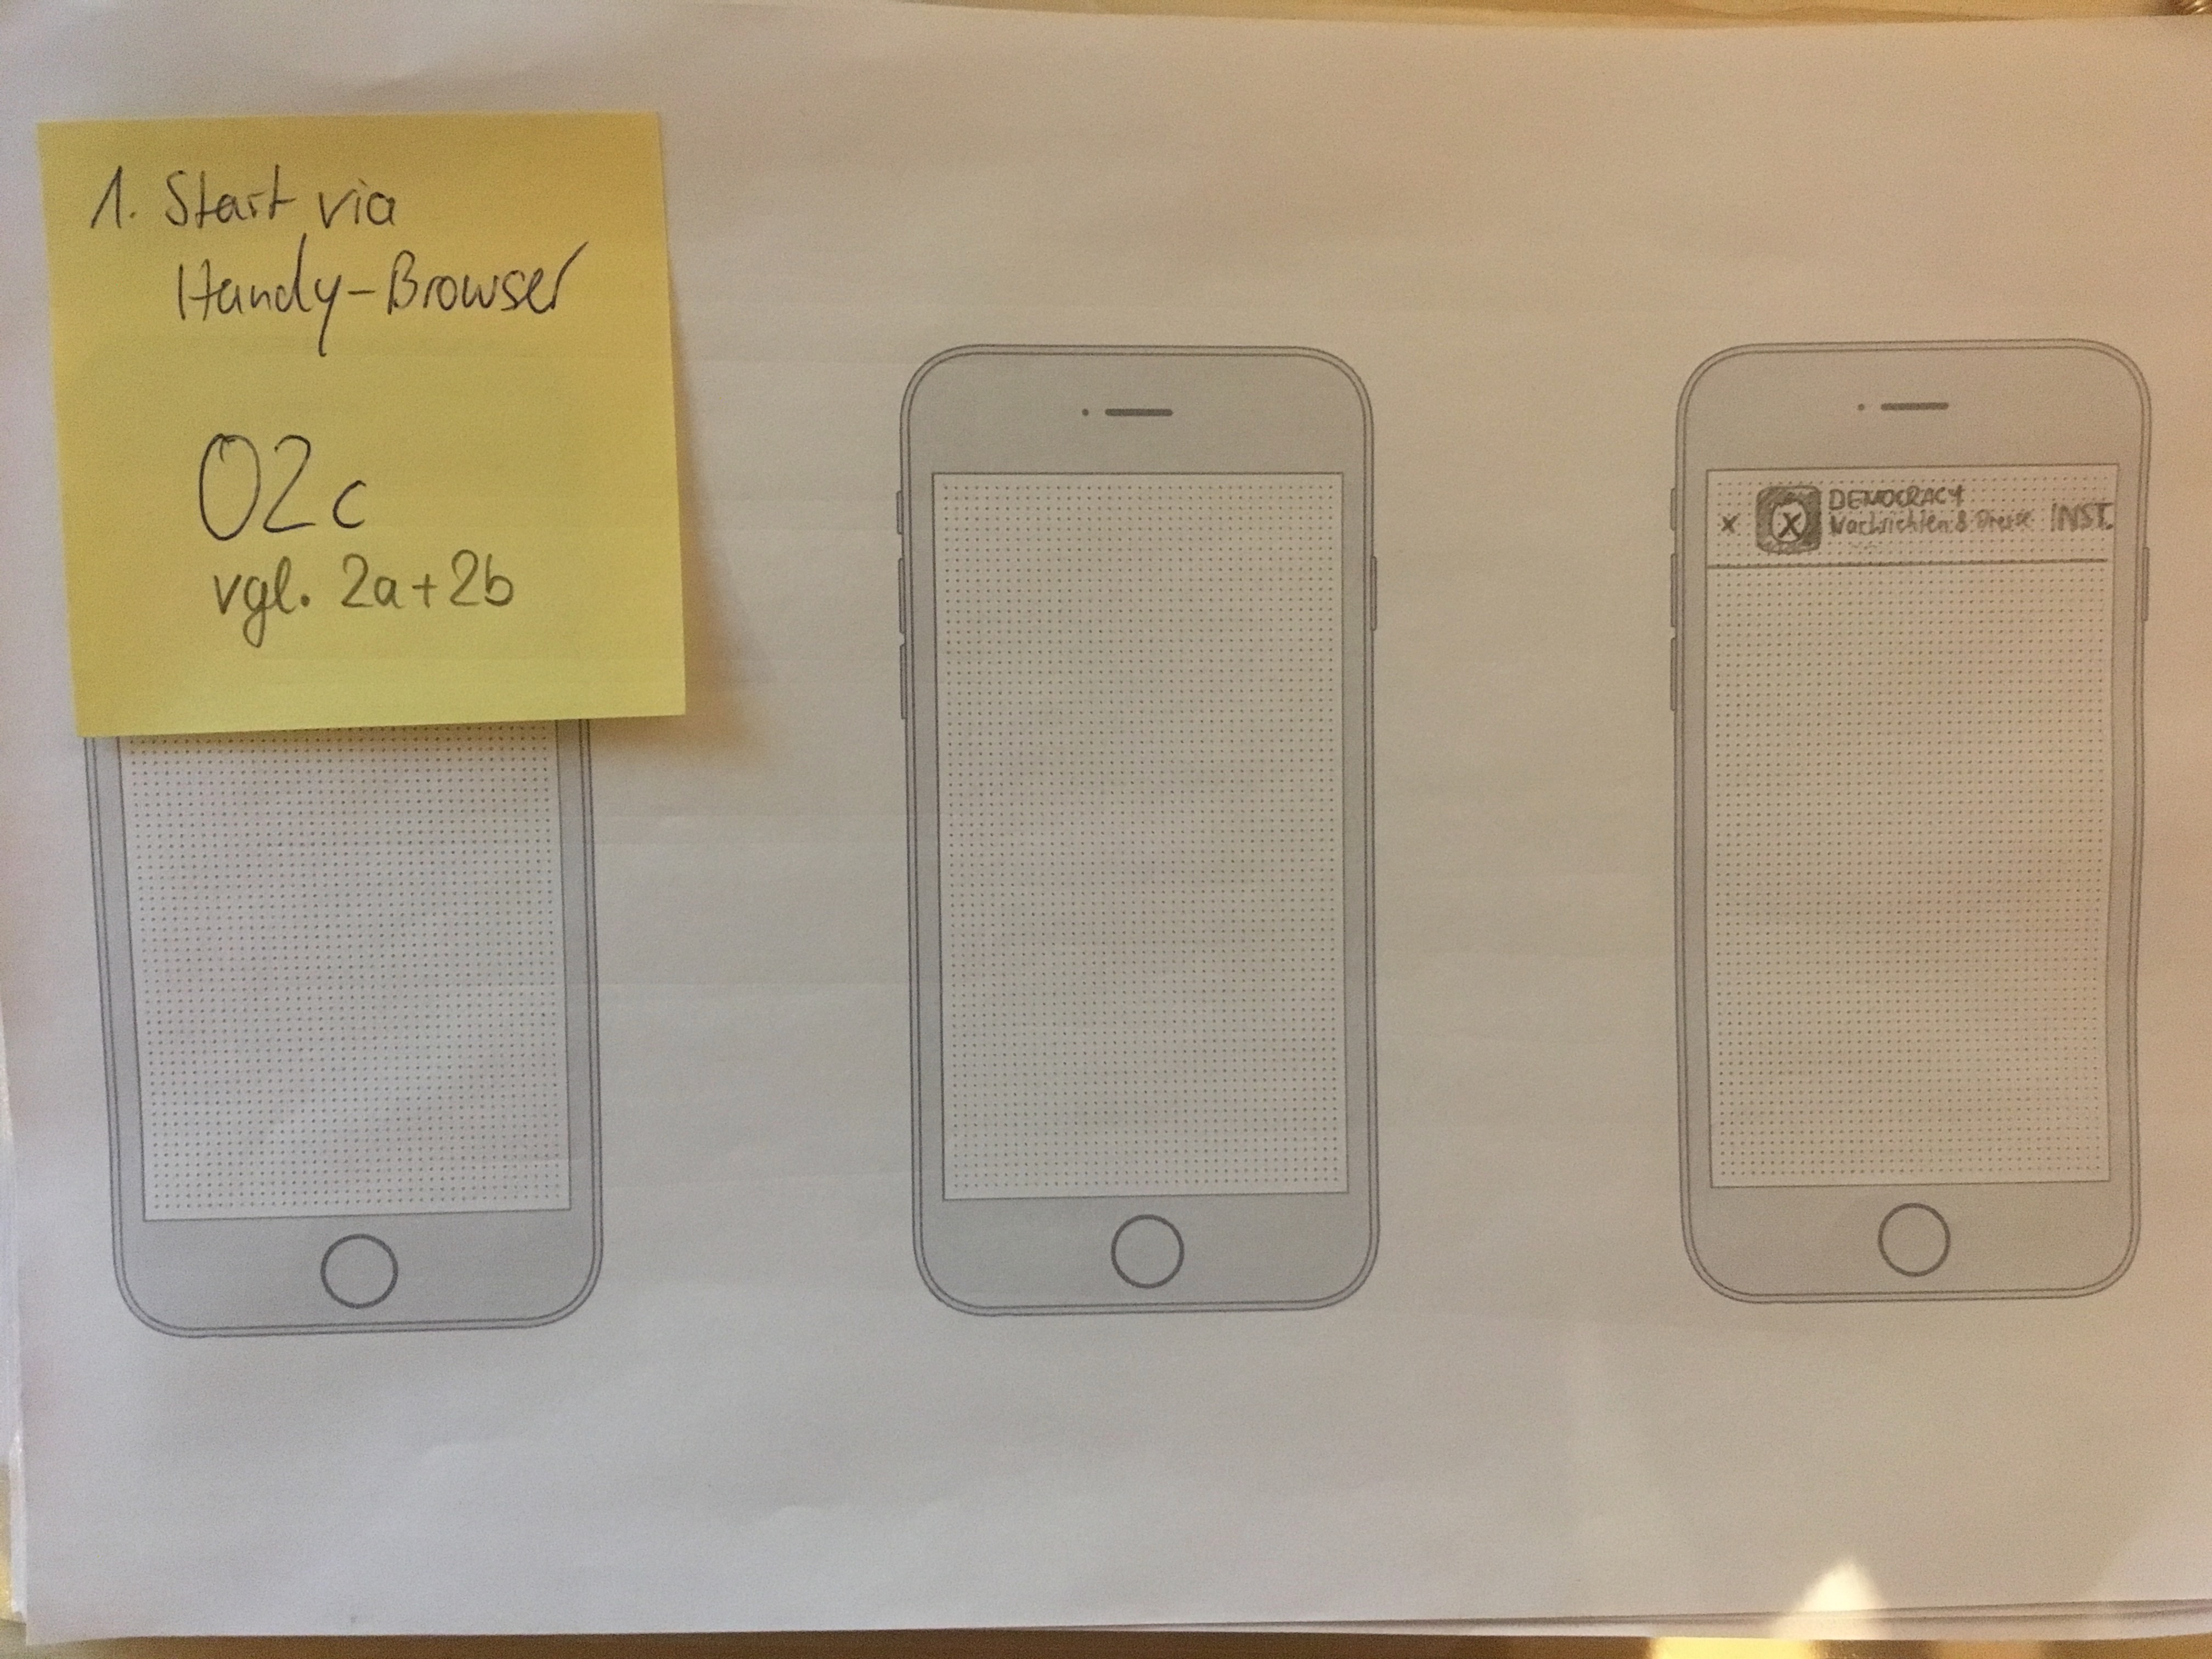 1. Start via
Handy-Browser
02c
vgl. 2a+2b
x
X
DEMOCRACY
Nachrichten & Presse
INST.